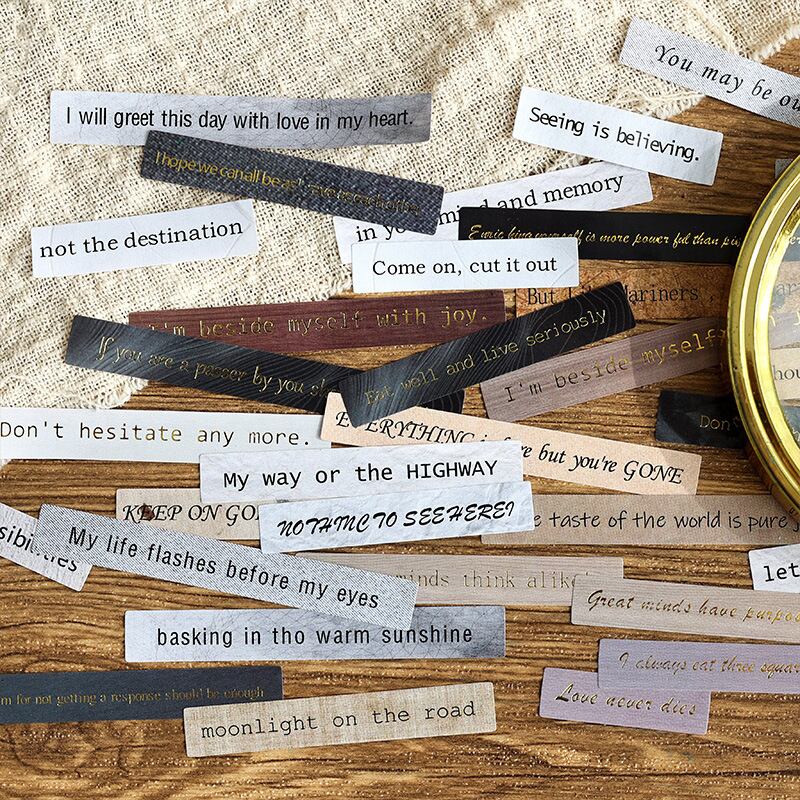 You may be
I will greet this day with love in my heart.
Seeing is believing.
I hope we can all be as
in your mind and memory
is more powerful than
not the destination
Come on, cut it out
But Mariners
I'm beside myself with joy.
If you are a passer by you
Eat well and live seriously
I'm beside myself
Don't hesitate any more.
EVERYTHING is but you're GONE
Don'
My way or the HIGHWAY
KEEP ON
NOTHINC TO SEE HERE!
taste of the world is pure
My life flashes before my eyes
minds think alike
let
Great minds have
basking in tho warm sunshine
I always eat three
for not getting a response should be enough
Love never dies
moonlight on the road